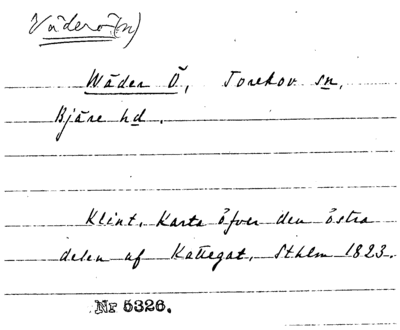 Väderö(n)
Wäder Ö, Torekov sn,
Bjäre hd.
Klint. Karta öfver den östra
delen af Kattegat. Sthlm 1823.
Nr 5326.